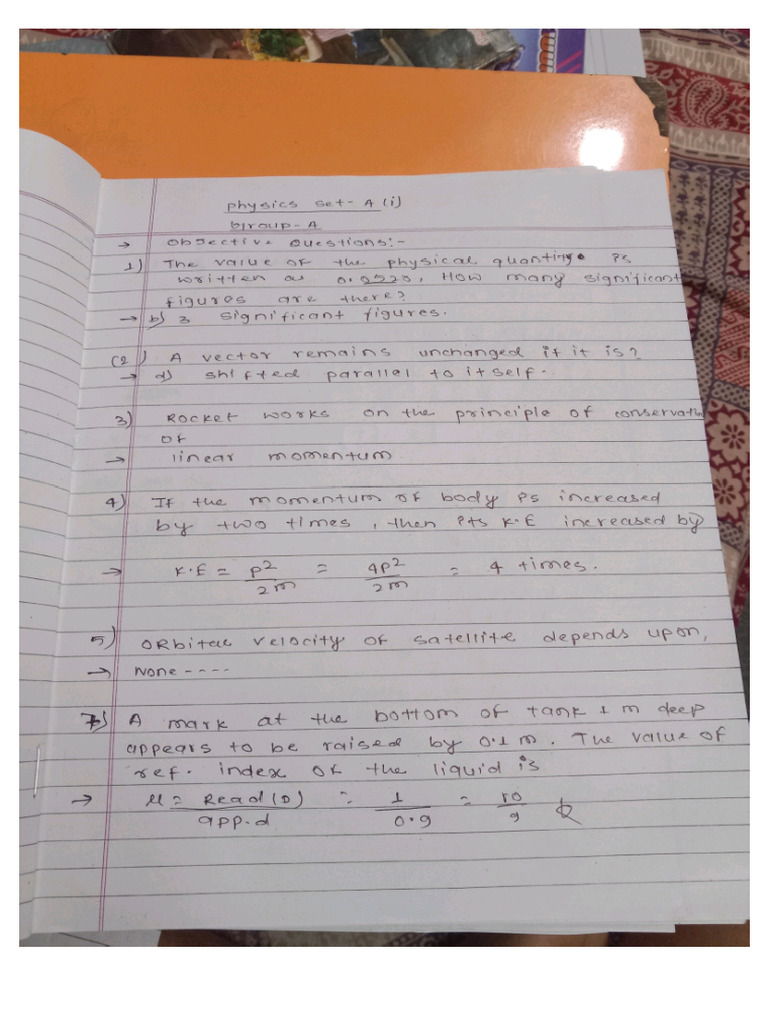 Physics Set-A (i)
Group-A
→ Objective Questions:-
1) The value of the physical quantity is
written as How many significant
figures are there?
→ b) 3 significant figures.
(2) A vector remains unchanged if it is?
→ d) shifted parallel to itself.
3) Rocket works on the principle of conservation
of
→ linear momentum
4) If the momentum of body is increased
by two times, then its K.E increased by
→ K.E = p²/2m = 4p²/2m = 4 times.
5) Orbital velocity of satellite depends upon,
→ None ----
7) A mark at the bottom of tank 1 m deep
appears to be raised by 0.1 m. The value of
ref. index of the liquid is
→ μ = Read(D)/app.d = 1/0.9 = 10/9